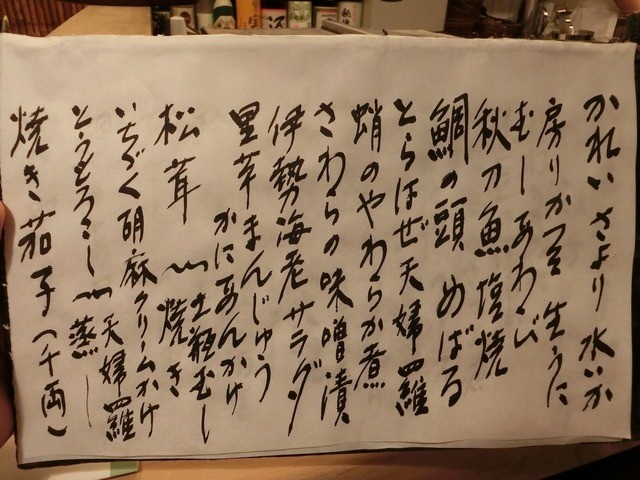 かれい さより 水いか
戻りかつを 生うに
むしあわび
秋刀魚塩焼
鯛の頭 めばる
とらはぜ天婦羅
蛸のやわらか煮
さわらの味噌漬
伊勢海老サラダ
里芋まんじゅう
かにあんかけ
松茸 土瓶むし
焼き
いちぢく胡麻クリームかけ
天婦羅
とうもろこし 蒸し
焼き茄子(千両)